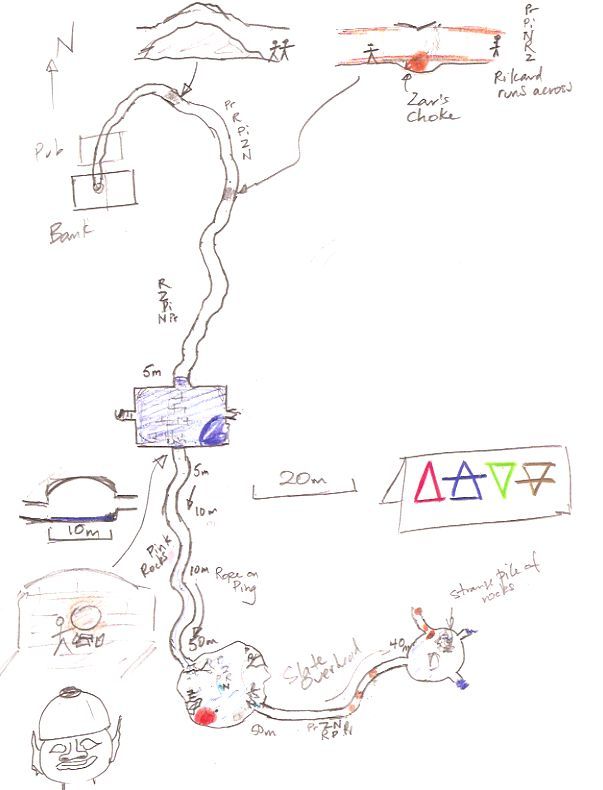 N
Pr
Pi
N
R
Z
Zar's
Choke
Rikard
runs across
Pub
Pr
R
Pi
Z
N
Bank
R
Z
Pi
N Pr
5m
5m
10m
20m
10m
Pink
Rocks
10m
Rope on
Ping
50m
strange pile of
rocks
Slate
Overhead
40m
50m
Pr Z N
R P Pr